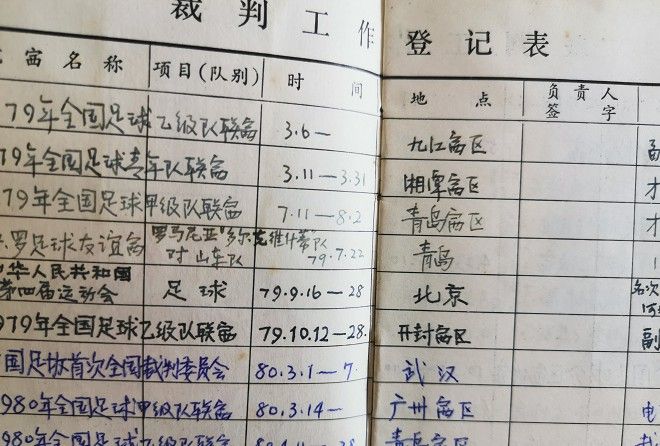 裁判工作 登记表
名称 项目(队别) 时间 地点 负责人签字
79年全国足球 乙级队联赛 3.6— 九江赛区
79年全国足球青年队联赛 3.11—3.31 湘潭赛区 才
79年全国足球甲级队联赛 7.11—8.2 青岛赛区 才
罗足球友谊赛 罗马尼亚"多尔 队 79.7.22 青岛
对山东队
华人民共和国
第四届运动会 足球 79.9.16—28 北京 名次
979年全国足球乙级队联赛 79.10.12—28. 开封赛区 副
国足协首次全国裁判委员会 80.3.1—7. 武汉
980年全国足球甲级队联赛 80.3.14— 广州赛区 电
980年全国足球乙级队联赛 青岛赛区